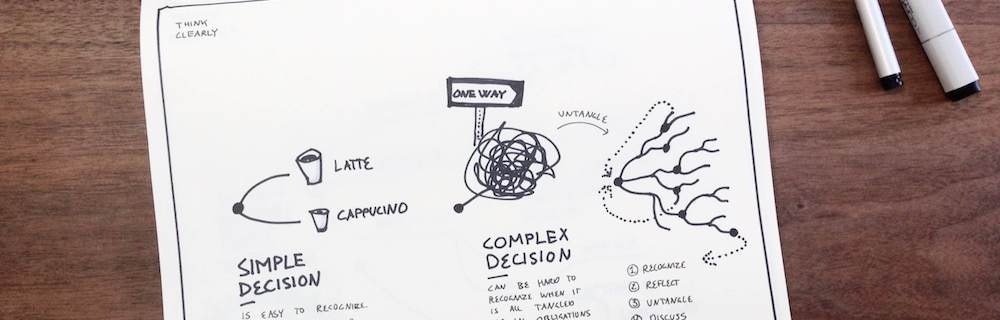 THINK
CLEARLY
ONE WAY
UNTANGLE
LATTE
CAPPUCINO
SIMPLE
DECISION
IS EASY TO RECOGNIZE.
COMPLEX
DECISION
CAN BE HARD TO
RECOGNIZE WHEN IT
IS ALL TANGLED
OBLIGATIONS
① RECOGNIZE
② REFLECT
③ UNTANGLE
④ DISCUSS